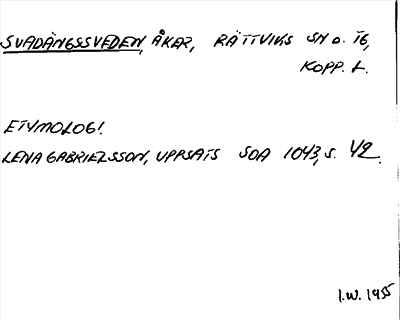 SVADÄNGSSVEDEN, ÅKER, RÄTTVIKS SN o. TG,
KOPP. L.
ETYMOLOGI.
LENA GABRIELSSON, UPPSATS SOA 1043, s. 42.
I.W. 1955